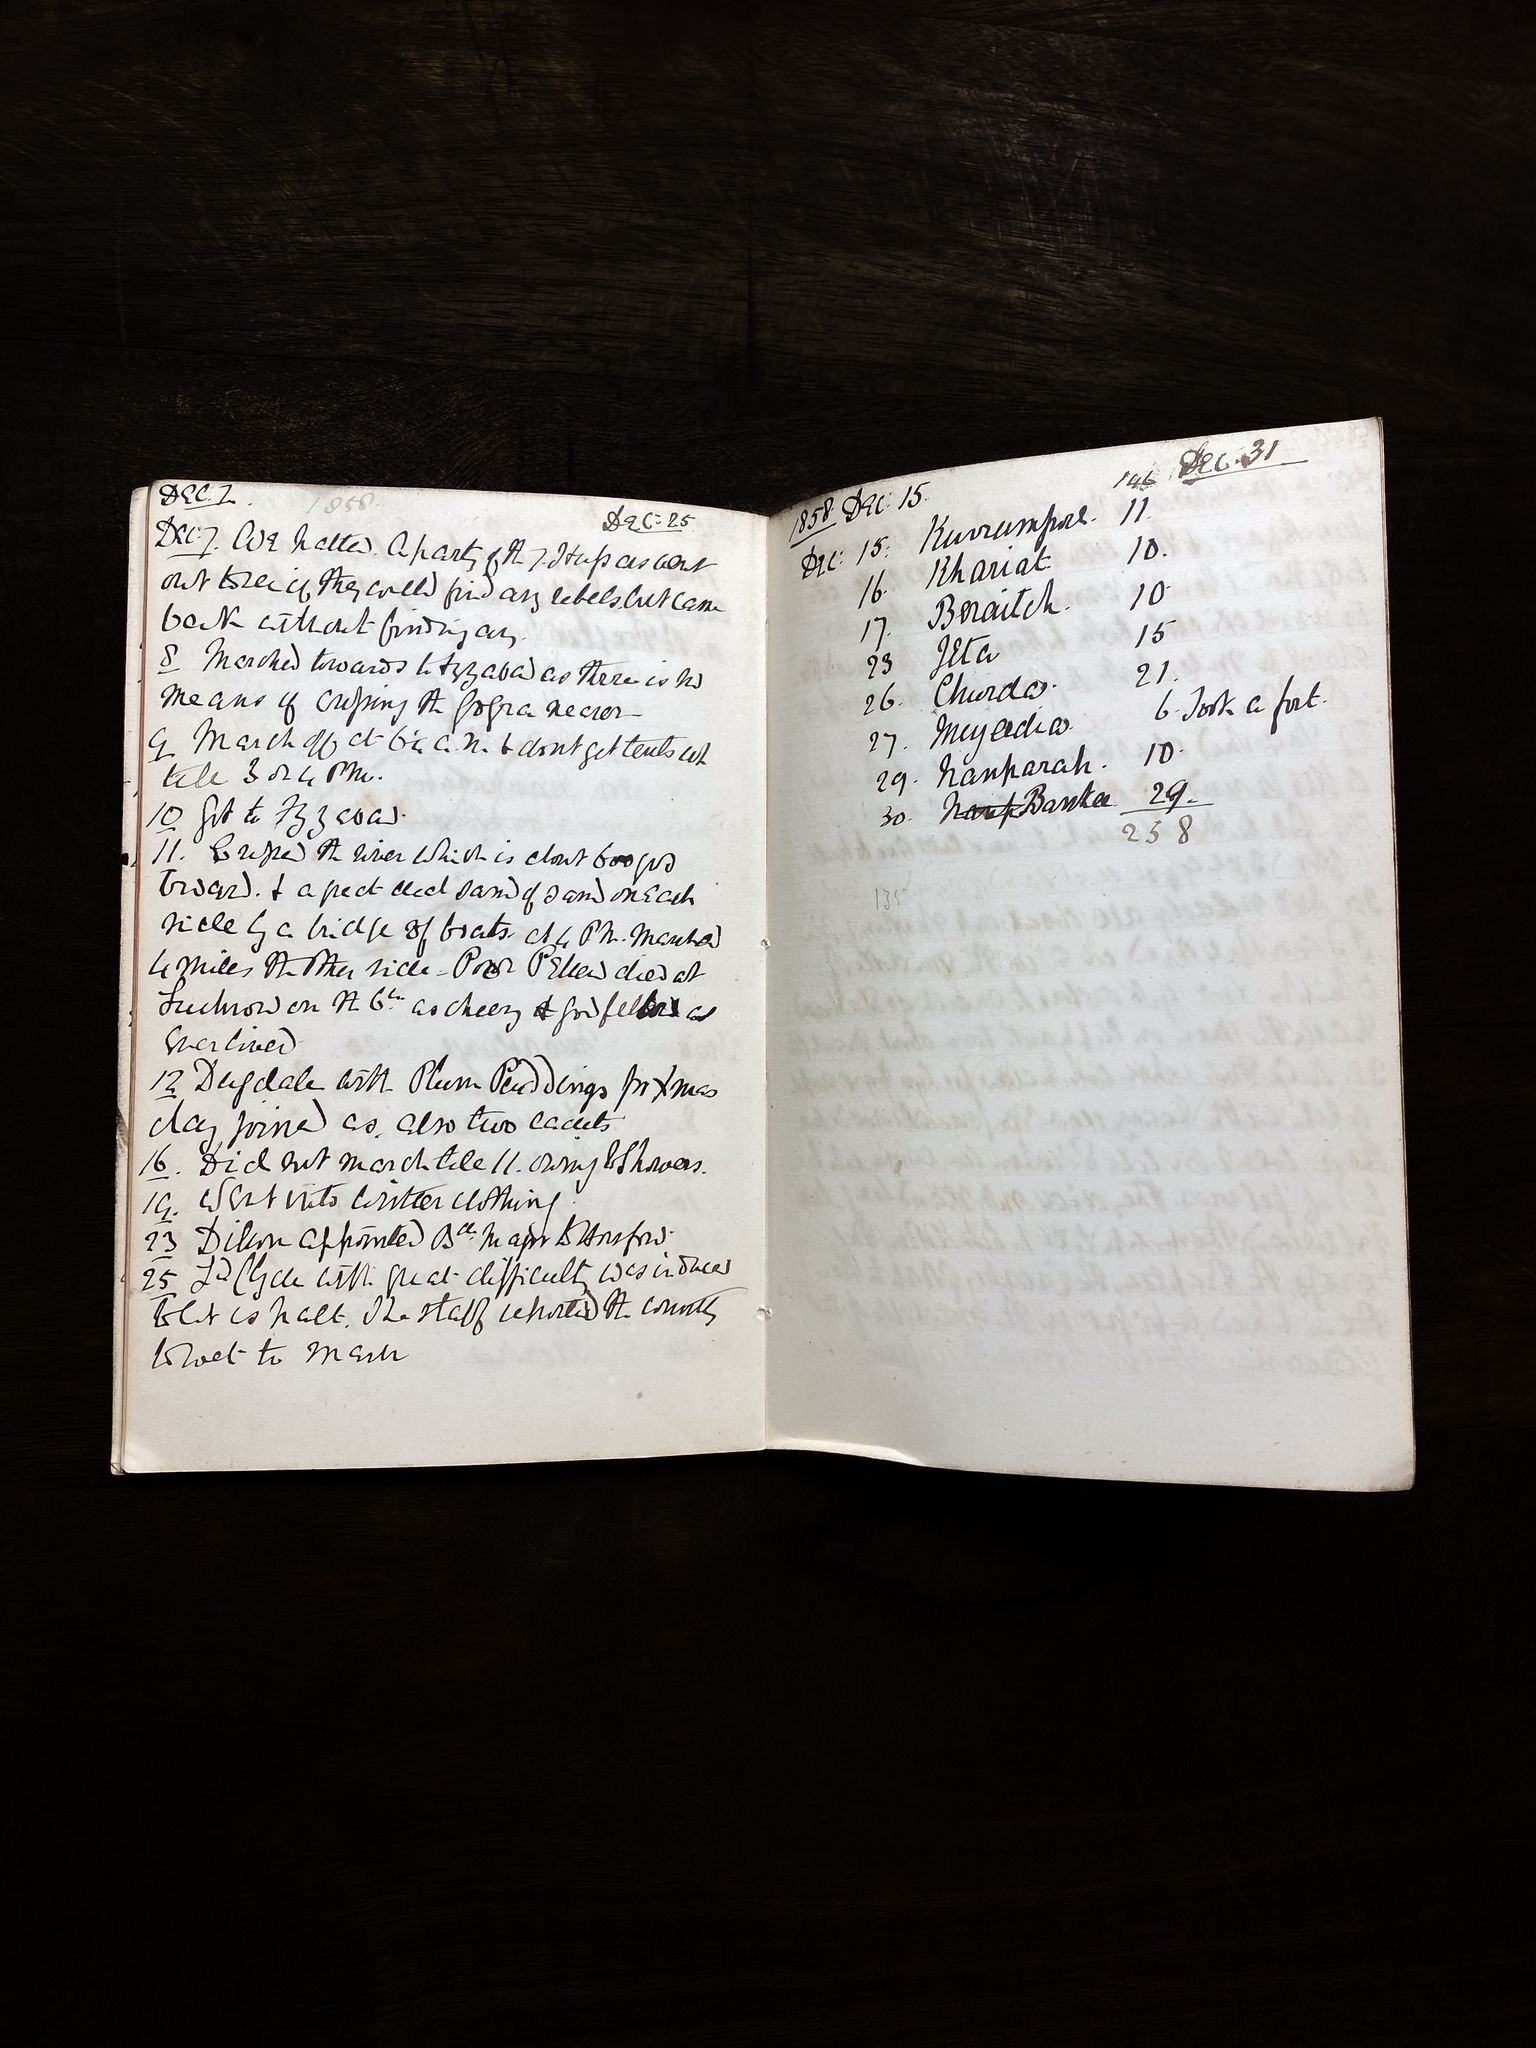 Dec. 7. 1858 Dec: 25
Dec 7. We halted. A party of the 7. Hussars went
out to see if they could find any rebels but came
back without finding any.
8 Marched towards to Fyzabad as there is no
means of crossing the Gogra nearer
9 March off at 6 a.m. & dont get tents up
till 3 or 4 P.M.
10 Got to Fyzabad.
11. Crossed the river which is about 600 yds
broad. & a great deal of sand on each
side by a bridge of boats at 4 P.M. Marched
4 miles the other side - Poor died at
Lucknow on the 6th as cheery & good fellow as
Ever lived
12 Dugdale with Plum Puddings for Xmas
day joined as also two cadets
16. Did not march till 11. owing to Showers.
19. Went into winter clothing
23 Dillon appointed Bde Major to Horsford.
25 Ld Clyde with great difficulty was induced
to let us halt. The staff reported the country
to wet to march
1858 Dec. 15. 146 Dec. 31
Dec: 15. Kurrumpore. 11.
16. Khariat 10.
17. Beraitch. 10
23 Jeta 15
26. Churda. 21.
27. Mejeedia. 6. Took a fort.
29. Nanparah. 10.
30. Nanp Banka 29.
258
135